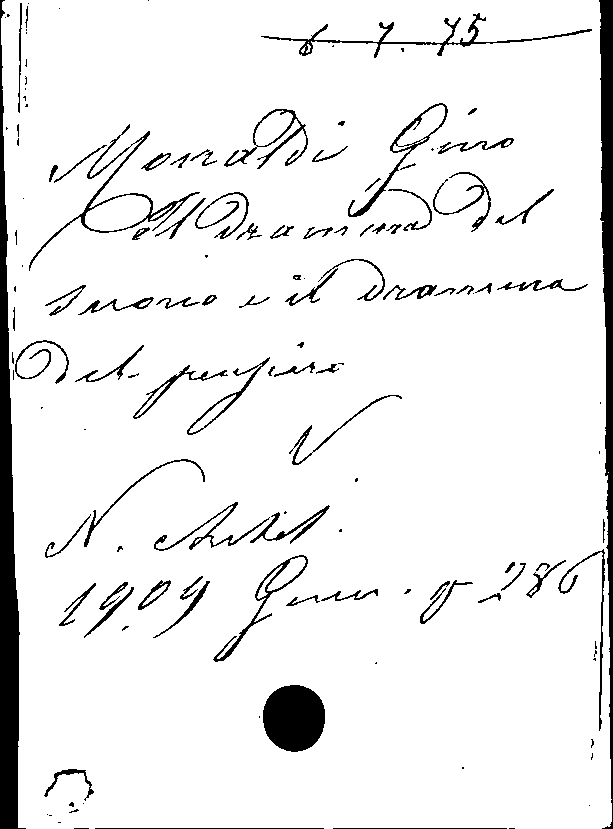 6. 7. 75
Monaldi Gino
Il dramma del
suono e il dramma
del pensiero
V.
N. Antol.
1909 Genn. p 286